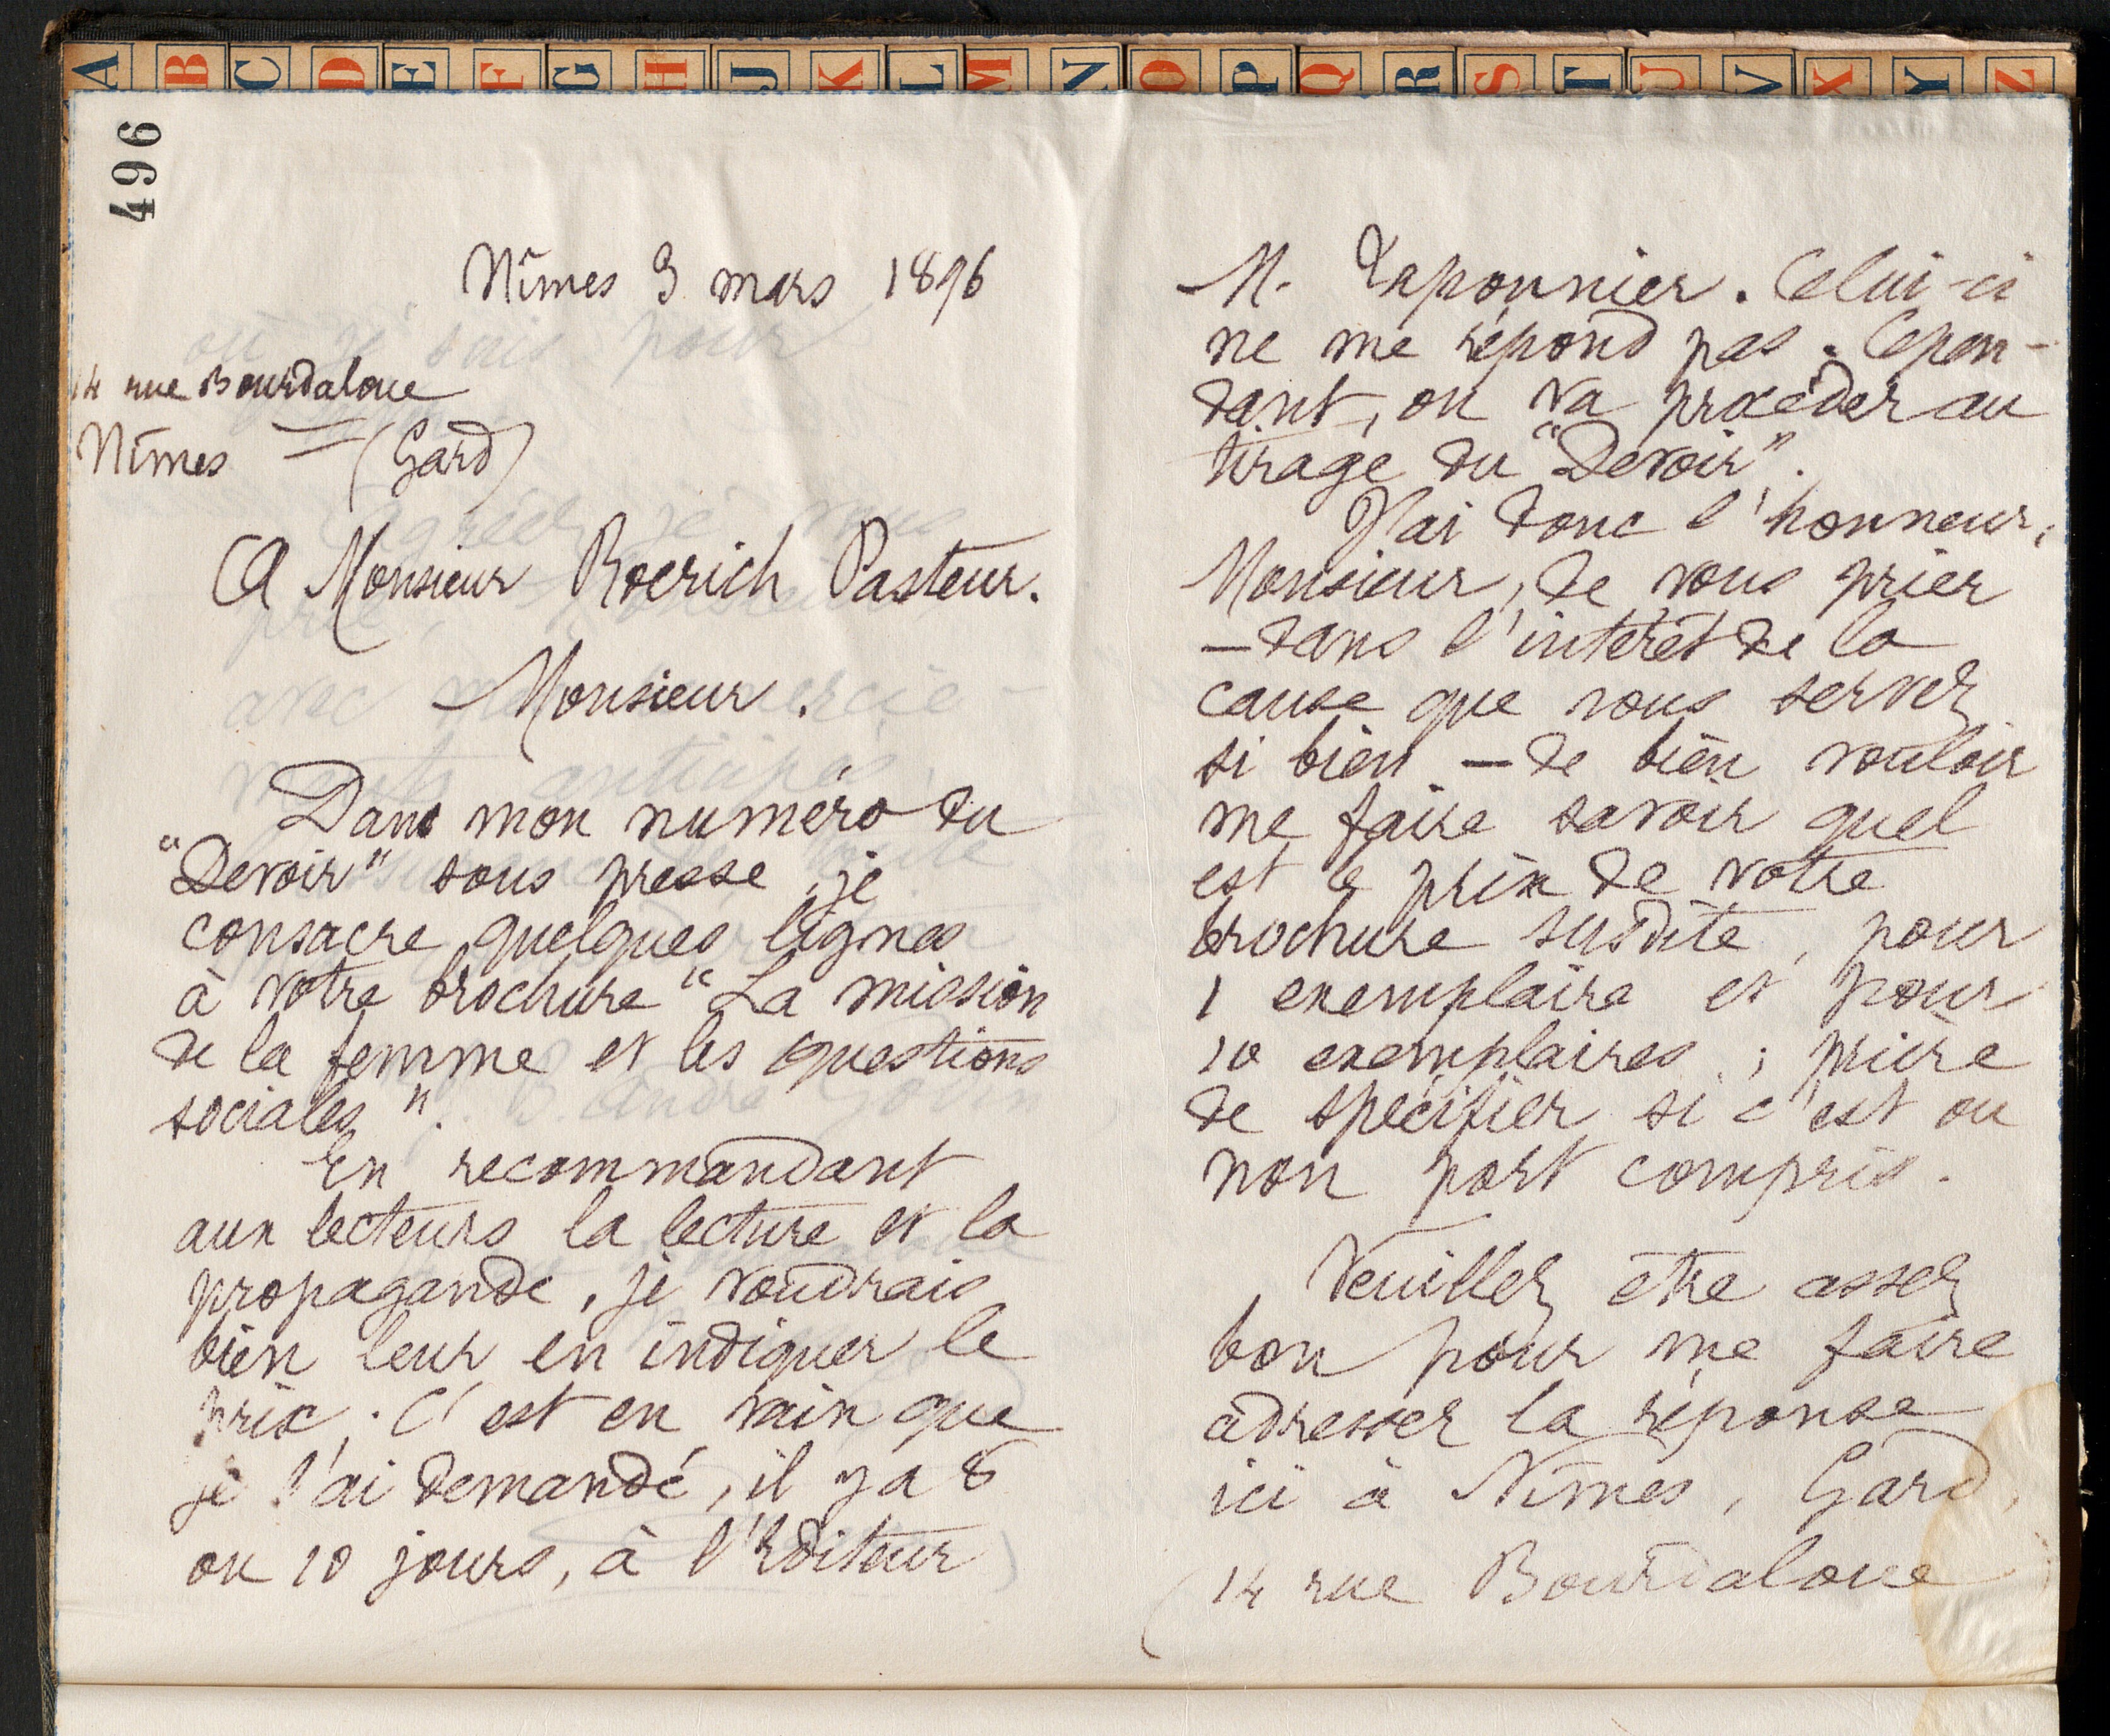 A B C D E F G H J K L M N O P Q R S T U V X Y Z
496
Nîmes 3 mars 1896
14 rue Bourdaloue
Nîmes = (Gard)
A Monsieur Roerich Pasteur.
Monsieur.
Dans mon numéro du
"Devoir" sous presse je
consacre quelques lignes
à votre brochure "La mission
de la femme et les questions
sociales".
En recommandant
aux lecteurs la lecture et la
propagande, je voudrais
bien leur en indiquer le
prix. C'est en vain que
je l'ai demandé, il y a 8
ou 10 jours, à l'Editeur
M. Laponnier. Celui-ci
ne me répond pas. Cepen-
dant, on va procéder au
tirage du "Devoir".
J'ai donc l'honneur,
Monsieur, de vous prier
— dans l'intérêt de la
cause que vous servez
si bien — de bien vouloir
me faire savoir quel
est le prix de votre
brochure susdite, pour
1 exemplaire et pour
10 exemplaires ; prière
de spécifier si c'est ou
non port compris.
Veuillez être assez
bon pour me faire
adresser la réponse
ici à Nîmes, Gard,
14 rue Bourdaloue